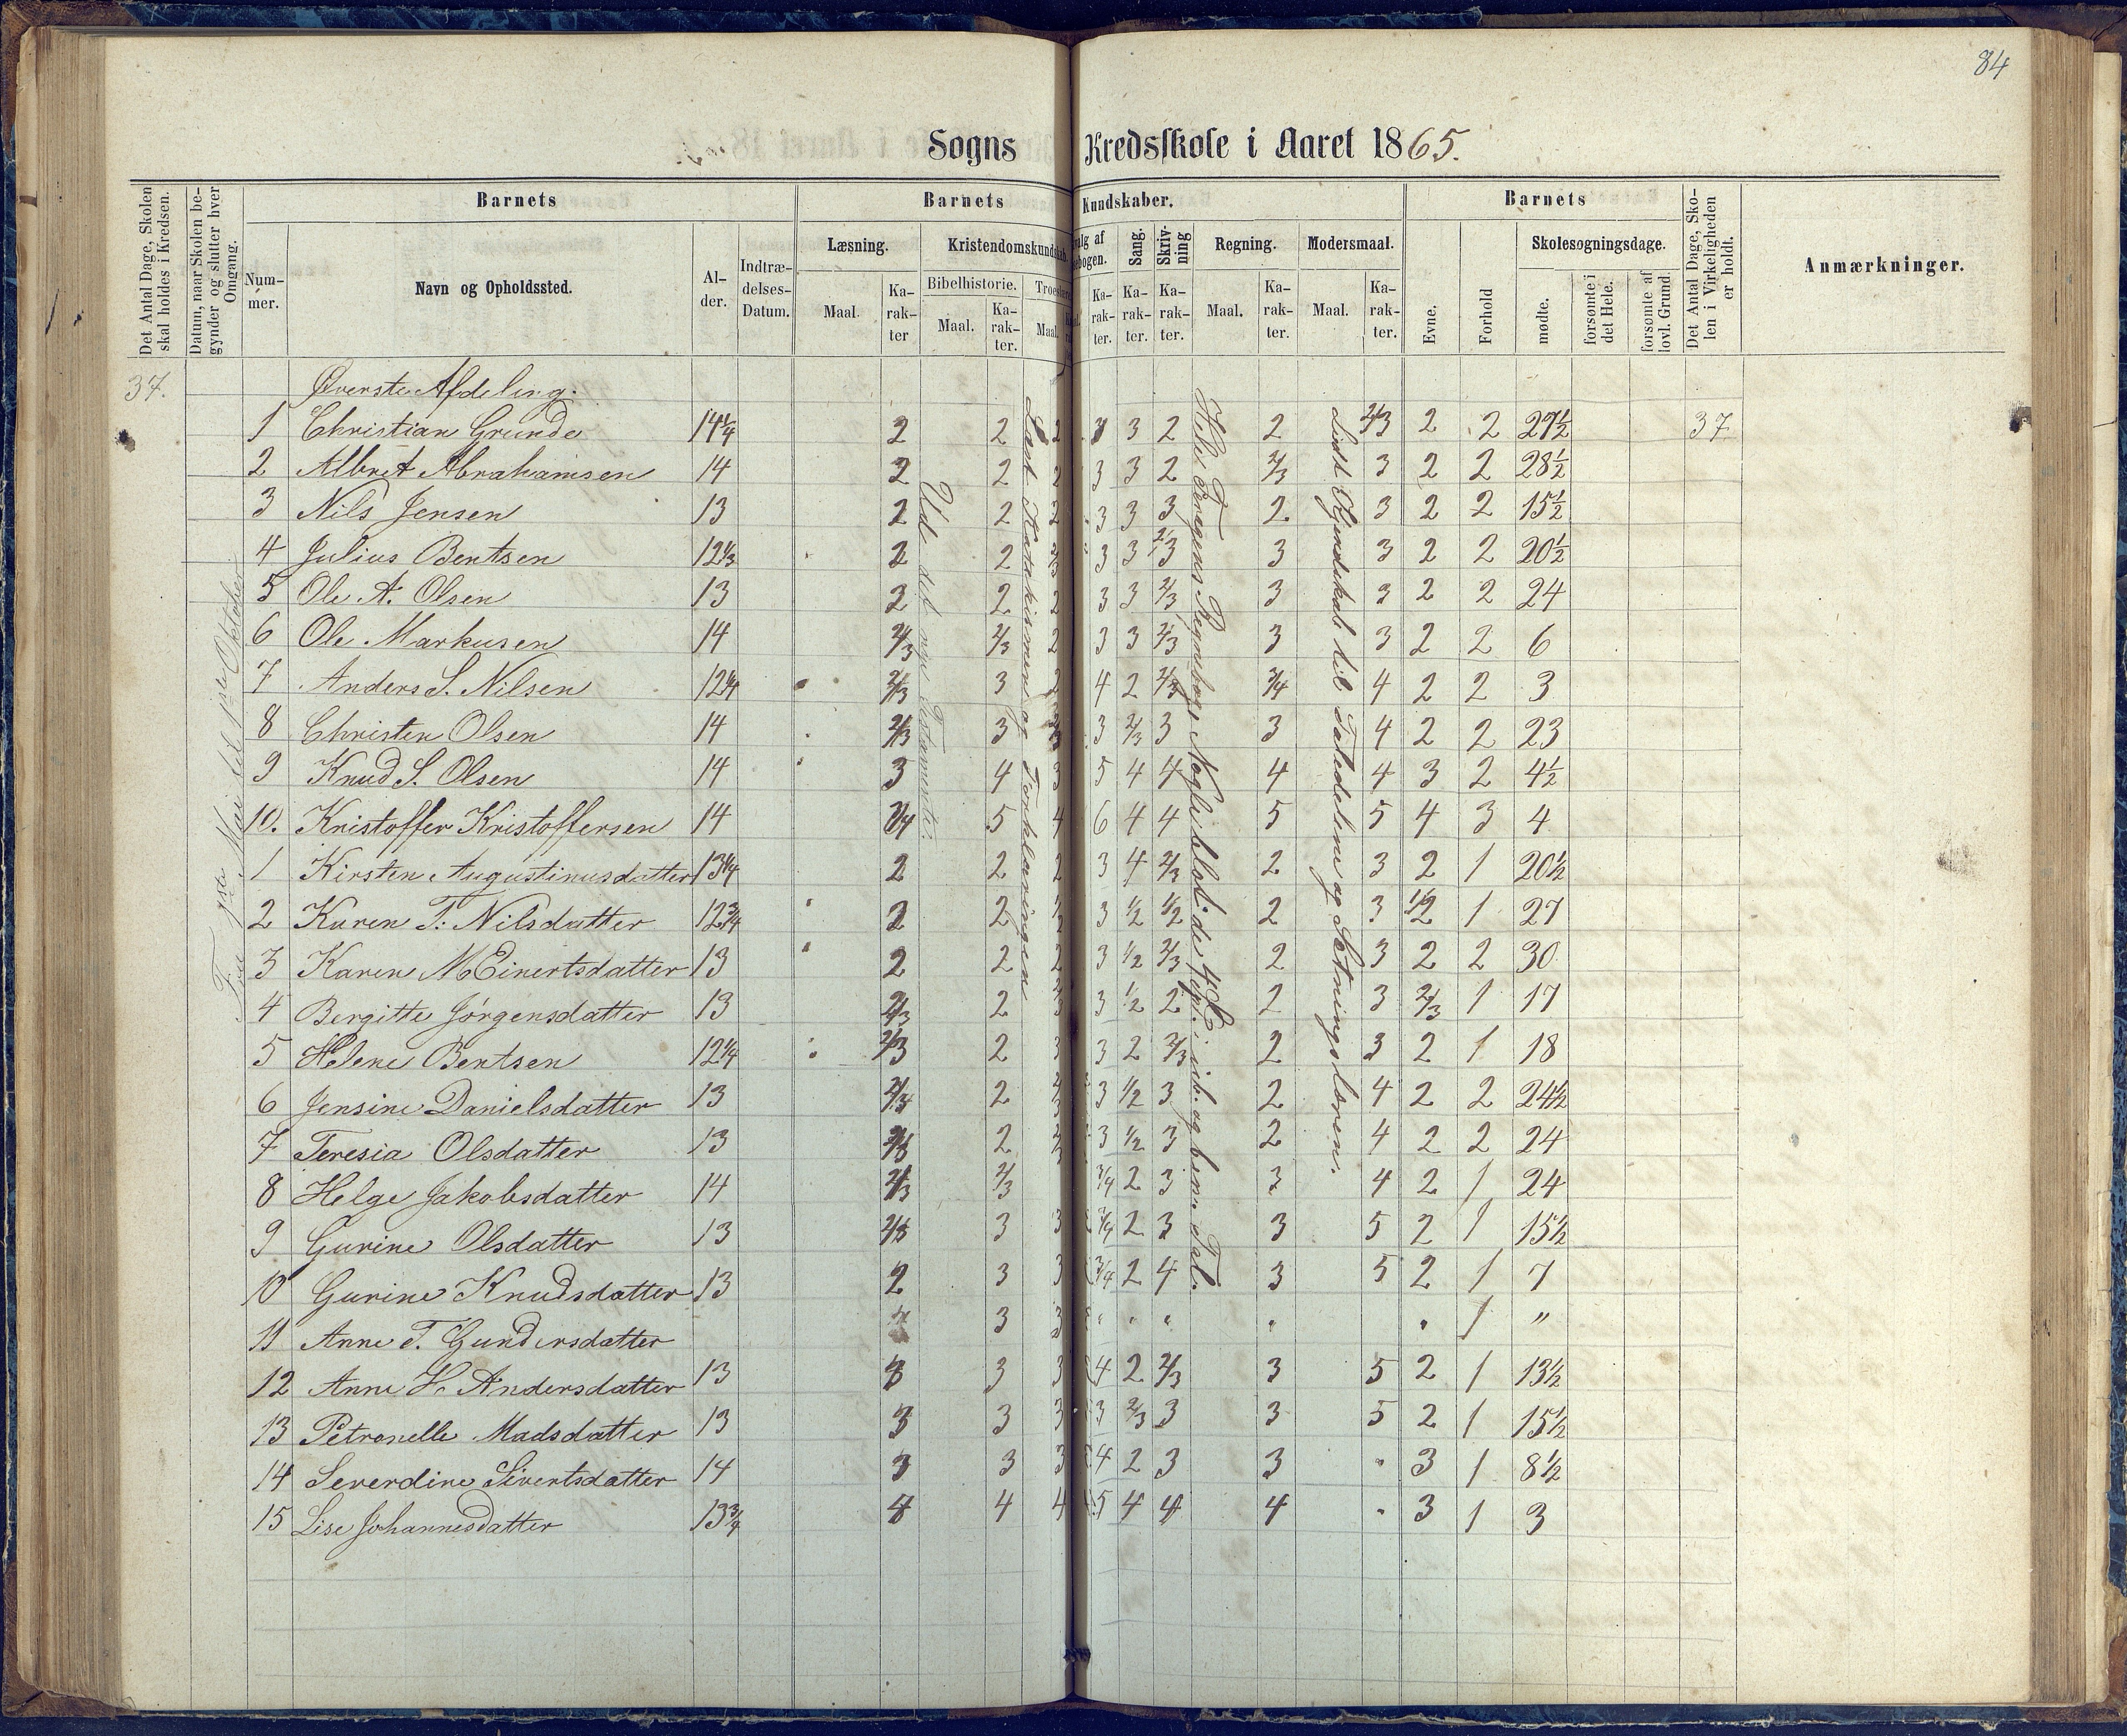 84
Sogns Kredsskole i Aaret 1865.
Det Antal Dage, Skolen skal holdes i Kredsen.
Datum, naar Skolen begynder og slutter hver Omgang.
Barnets
Nummer.
Navn og Opholdssted.
Alder.
Indtrædelses-Datum.
Barnets Kundskaber.
Læsning.
Maal.
Karakter
Kristendomskundskab.
Bibelhistorie.
Maal.
Karakter.
Maal.
Karakter.
Sang.
Karakter.
Skrivning
Karakter.
Regning.
Maal.
Karakter.
Modersmaal.
Maal.
Karakter.
Barnets
Evne.
Forhold
Skolesøgningsdage.
mødte.
forsømte i det Hele.
forsømte af lovl. Grund.
Det Antal Dage, Skolen i Virkeligheden er holdt.
Anmærkninger.
37. Øverste Afdeling.
1 Christian Grunde 14¼ 2 2 2 3 3 2 2 2/3 2 2 27½ 37
2 Albret Abrahamsen 14 2 2 2 3 3 2 2/3 3 2 2 28½
3 Nils Jensen 13 2 2 2 3 3 3 2 3 2 2 15½
4 Julius Bentsen 12⅓ 2 2 2/3 3 3 2/3 3 3 2 2 20½
5 Ole A. Olsen 13 2 2 2 3 3 2/3 3 3 2 2 24
6 Ole Markusen 14 2/3 2/3 2 3 3 2/3 3 3 2 2 6
7 Anders S. Nilsen 12¼ 2/3 3 2 4 2 2/3 3/4 4 2 2 3
8 Christen Olsen 14 2/3 3 2/3 3 2/3 3 3 4 2 2 23
9 Knud S. Olsen 14 3 4 3 5 4 4 4 4 3 2 4½
10. Kristoffer Kristoffersen 14 3/4 5 4 6 4 4 5 5 4 3 4
1 Kirsten Augustinusdatter 13¼ 2 2 2 3 4 2/3 2 3 2 1 20½
2 Karen T. Nilsdatter 12¾ 2 2 2 3 1/2 1/2 2 3 1/2 1 27
3 Karen M Einertsdatter 13 2 2 2 3 1/2 2/3 2 3 2 2 30
4 Bergitte Jørgensdatter 13 2/3 2 3 1/2 2 2 3 2/3 1 17
5 Helene Bentsen 12¼ 2/3 2 3 2 2/3 2 3 2 1 18
6 Jensine Danielsdatter 13 2/3 2 3 1/2 3 2 4 2 2 24½
7 Teresia Olsdatter 13 2/3 2 3 1/2 3 2 4 2 2 24
8 Helge Jakobsdatter 14 2/3 2/3 3/4 2 3 3 4 2 1 24
9 Gurine Olsdatter 13 2/3 3 3 3/4 2 3 3 5 2 1 15½
10 Gurine Knudsdatter 13 2 3 3 3/4 2 4 3 5 2 1 7
11 Anne T. Gundersdatter 3 3 " " " " " 1 "
12 Anne H. Andersdatter 13 3 3 3 4 2 2/3 3 5 2 1 13½
13 Petronelle Madsdatter 13 3 3 3 3 2/3 3 3 5 2 1 15½
14 Severdine Sivertsdatter 14 3 3 3 4 2 3 3 " 3 1 8½
15 Lise Johannesdatter 13¾ 4 4 5 4 4 4 " 3 1 3
Fra 1ste Mai til 1ste Oktober
Ud det nye Testamente.
Læst Katekismen og Forklaringen
Hele Fragens Regnebog. Nogle blot de 4 Sp. i ub. og ben. Tal.
Lidt Kjendskab til Taledelene og Sætningslæren.